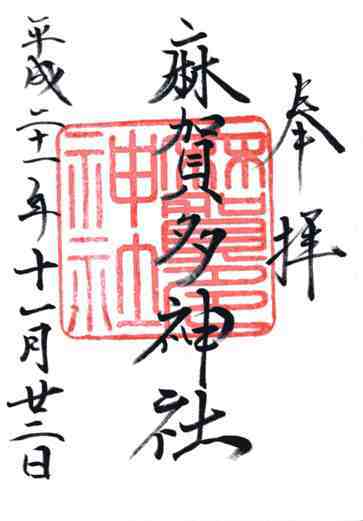 奉拝
麻賀多神社
平成二十一年十一月廿二日
麻賀多
神社